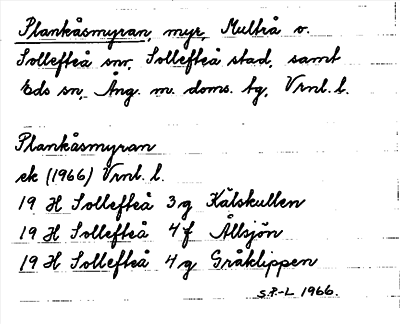 Plankåsmyran, myr, Multrå o.
Sollefteå snr, Sollefteå stad, samt
Eds sn, Ång. m. doms. tg, Vrnl. l.
Plankåsmyran
ek (1966) Vrnl. l.
19 H Sollefteå 3g Kälskullen
19 H Sollefteå 4f Ållsjön
19 H Sollefteå 4g Gråklippen
S.P.-L 1966.